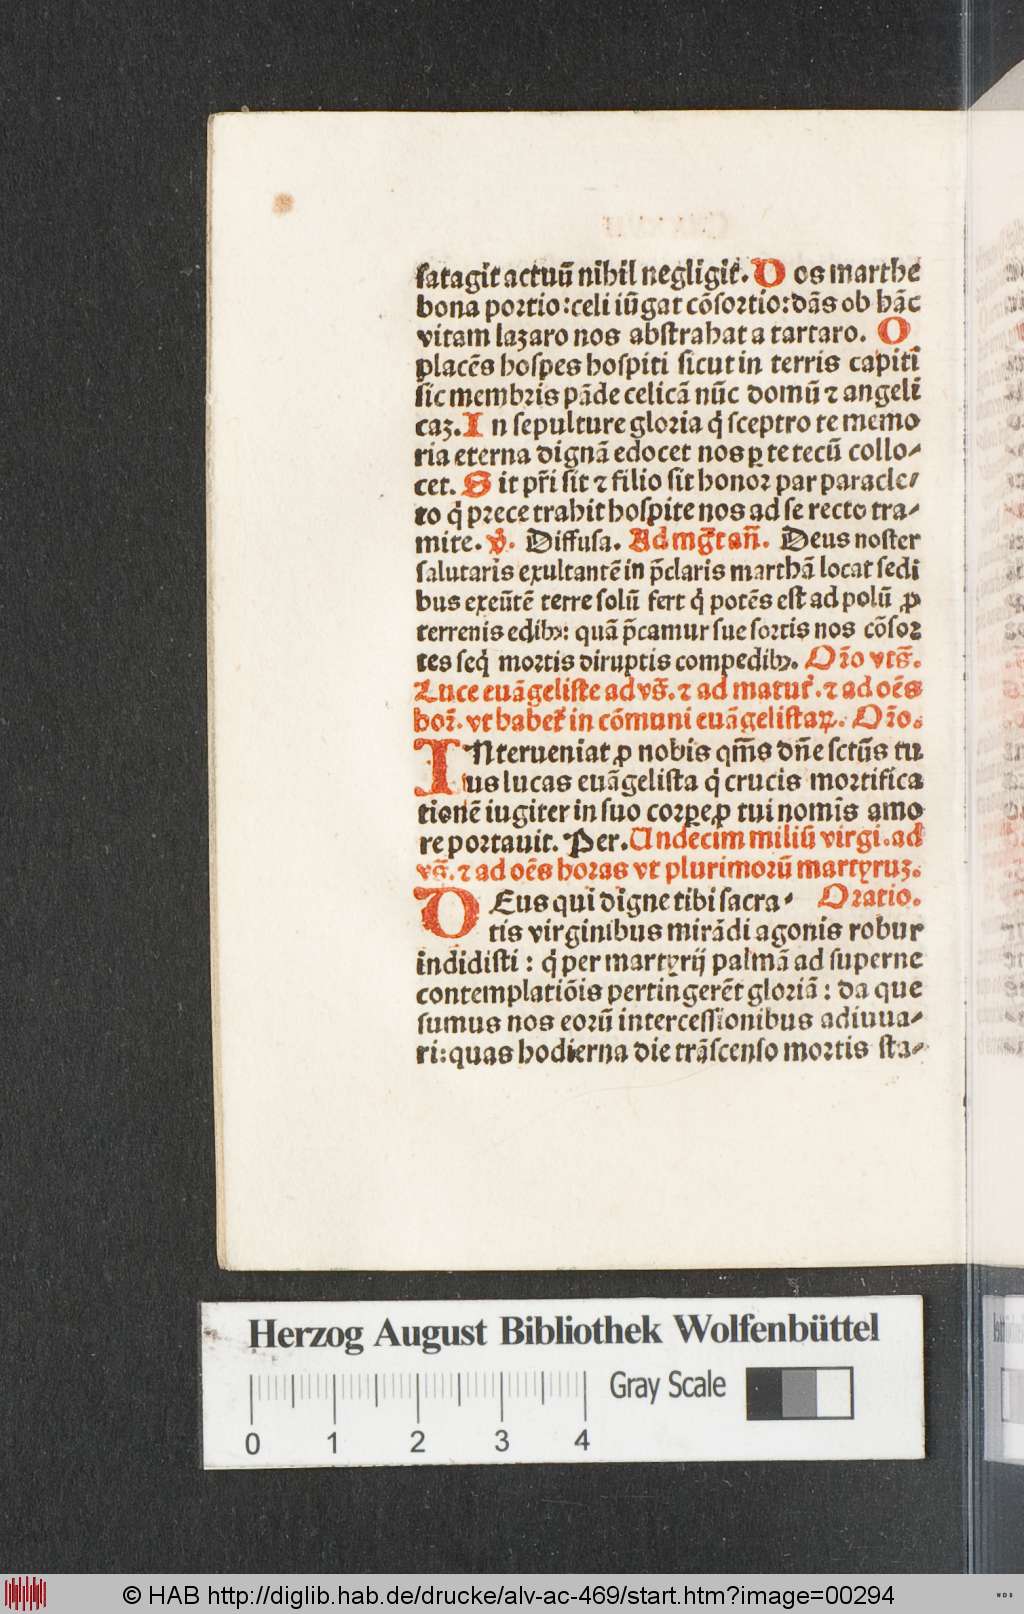 satagit actuū nihil negligit. D os marthe
bona portio: celi iūgat cōsortio: dās ob hāc
vitam lazaro nos abstrahat a tartaro. O
placēs hospes hospiti sicut in terris capiti
sic membris pāde celicā nūc domū ⁊ angeli
caꝫ. I n sepulture gloria q̇ sceptro te memo
ria eterna dignā edocet nos ꝑ te tecū collo⸗
cet. S it pr̄i sit ⁊ filio sit honor par paracle⸗
to q̇ prece trahit hospite nos ad se recto tra⸗
mite. v̓. Diffusa. Ad mg̅t an̄. Deus noster
salutaris exultantē in p̄claris marthā locat sedi
bus exeūtē terre solū fert q̇ potēs est ad polū ꝓ
terrenis edibꝫ: quā p̄camur sue sortis nos cōsor
tes seq̇ mortis diruptis compedibꝫ. Or̄o vts̄.
Luce euāgeliste ad vs̄. ⁊ ad matut̄. ⁊ ad oēs
hor̄. vt habet̄ in cōmuni euāgelistaꝝ. Or̄o.
INterueniat ꝓ nobis qm̄s dn̄e sctūs tu
us lucas euāgelista q̇ crucis mortifica
tionē iugiter in suo corꝑe ꝓ tui nomīs amo
re portauit. Per. Undecim miliū virgi. ad
vs̄. ⁊ ad oēs horas vt plurimorū martyruꝫ.
DEus qui digne tibi sacra⸗ Oratio.
tis virginibus mirādi agonis robur
indidisti: q̇ per martyrij palmā ad superne
contemplatiōis pertingerēt gloriā: da que
sumus nos eorū intercessionibus adiuua⸗
ri: quas hodierna die trāscenso mortis sta⸗
Herzog August Bibliothek Wolfenbüttel
Gray Scale
0 1 2 3 4
© HAB http://diglib.hab.de/drucke/alv-ac-469/start.htm?image=00294